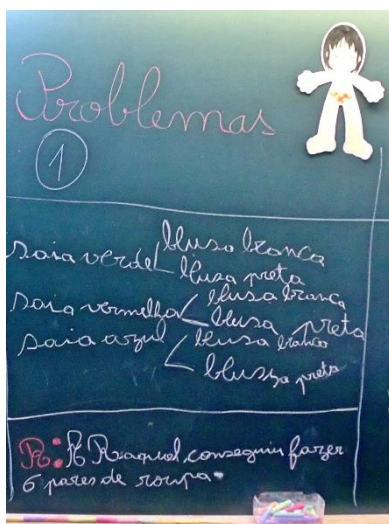 Problemas
1
saia verde blusa branca
blusa preta
saia vermelha blusa branca
blusa preta
saia azul blusa branca
blusa preta
R: A Raquel conseguiu fazer
6 pares de roupa.